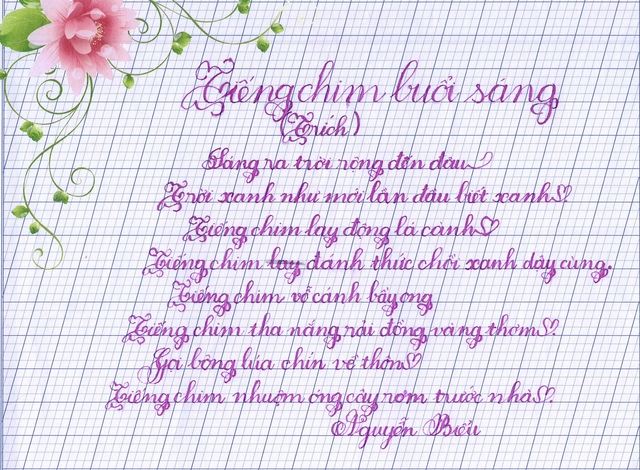 Tiếng chim buổi sáng
(Trích)
Sáng ra trời rộng đến đâu
Trời xanh như mới lần đầu biết xanh.
Tiếng chim lay động lá cành
Tiếng chim lay đánh thức chồi xanh dậy cùng.
Tiếng chim vỗ cánh bầy ong
Tiếng chim tha nắng rải đồng vàng thơm.
Gọi bông lúa chín về thôn
Tiếng chim nhuộm óng cây rơm trước nhà.
Nguyễn Biểu